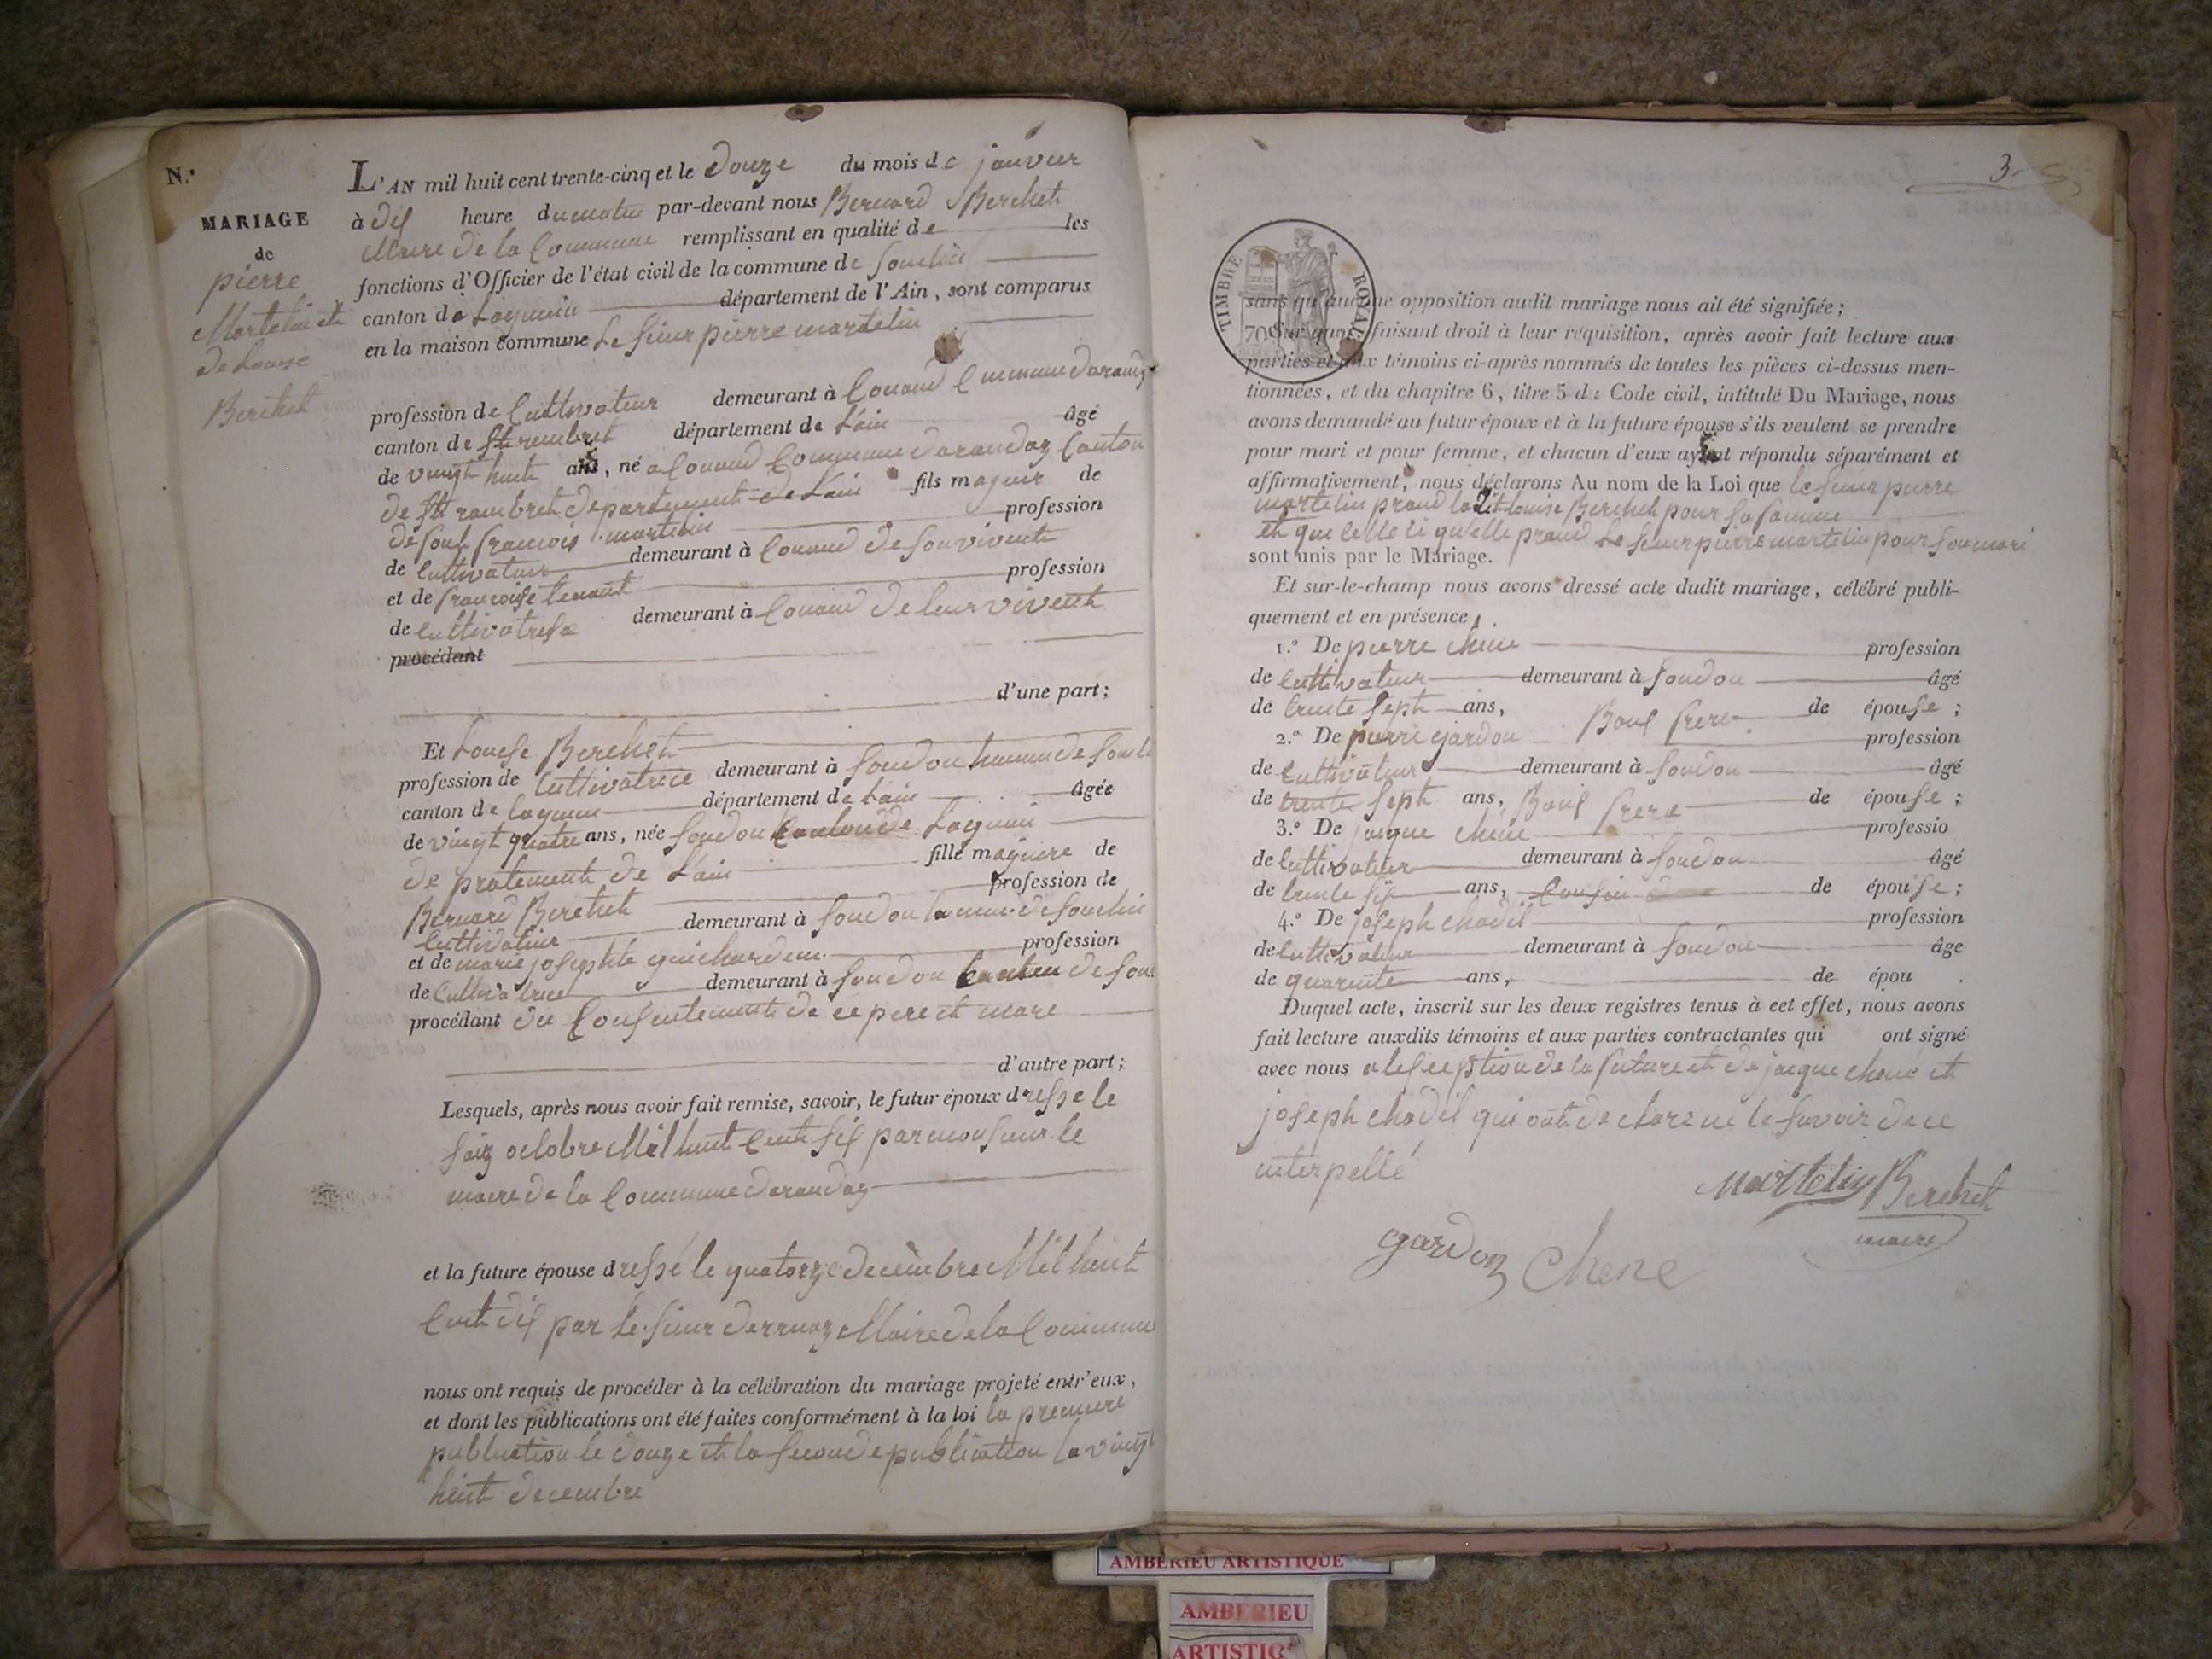 N.°
MARIAGE
de
pierre
Martelin et
de Louise
Berchet
L'AN mil huit cent trente-cinq et le douze du mois de janvier
à dis heure du matin par-devant nous Bernard Berchet
Maire de la Commune remplissant en qualité de les
fonctions d'Officier de l'état civil de la commune de Souclin
canton de Lagnieu département de l'Ain, sont comparus
en la maison commune Le sieur pierre martelin
profession de Cultivateur demeurant à Conand Commune
canton de st rembret département de Lain âgé
de vingt huit ans, né a Conand Commune darandaz Canton
de st rambret departement de Lain fils majeur de
de fout francois martelin profession
de Cultivateur demeurant à Conand de son vivente
et de francoise tenant profession
de Cultivatrise demeurant à Conand de leur vivent
procédant
d'une part;
Et Louise Berchet
profession de Cultivatrice demeurant à Soudon
canton de lagnieu département de Lain âgée
de vingt quatre ans, née Soudon Canton de Lagnieu
de pratement de Lain fille majeure de
Bernard Berchet profession de
Cultivateur demeurant à Soudon Commune de Souclin
et de marie josephte profession
de Cultivatrice demeurant à Soudon
procédant du Consentement de ce pere et mere
d'autre part;
Lesquels, après nous avoir fait remise, savoir, le futur époux dresse le
octobre Mil huit Cent sis par monsieur le
maire de la Commune darandaz
et la future épouse dressé le quatorze decembre Mil huit
Cent dis par le sieur Maire de la Commune
nous ont requis de procéder à la célébration du mariage projeté entr'eux,
et dont les publications ont été faites conformément à la loi la premiere
publication le douze et la seconde publication le vingt
huit decembre
3
TIMBRE ROYAL
70
sans qu'aucune opposition audit mariage nous ait été signifiée;
Sur quoi, faisant droit à leur réquisition, après avoir fait lecture aux
parties et aux témoins ci-après nommés de toutes les pièces ci-dessus men-
tionnées, et du chapitre 6, titre 5 du Code civil, intitulé Du Mariage, nous
avons demandé au futur époux et à la future épouse s'ils veulent se prendre
pour mari et pour femme, et chacun d'eux ayant répondu séparément et
affirmativement, nous déclarons Au nom de la Loi que le sieur pierre
martelin prand ladit louise Berchet pour sa famme
et que celle ci qu'elle prand Le sieur pierre martelin pour son mari
sont unis par le Mariage.
Et sur-le-champ nous avons dressé acte dudit mariage, célébré publi-
quement et en présence,
1.° De pierre chene profession
de Cultivateur demeurant à Soudon âgé
de trente sept ans, Bous frere de épouse;
2.° De pierre gardon profession
de Cultivateur demeurant à Soudon âgé
de trente sept ans, Bous frere de épouse;
3.° De jaique chene professio
de Cultivateur demeurant à Soudon âgé
de trente sis ans, Cousin de épouse;
4.° De joseph chadel profession
de Cultivateur demeurant à Soudon âge
de quarente ans, de épou .
Duquel acte, inscrit sur les deux registres tenus à cet effet, nous avons
fait lecture auxdits témoins et aux parties contractantes qui ont signé
avec nous a lesseption de la future et de jaique chene et
joseph chadel qui ont declare ne le savoir de ce
interpellé
Martelin Berchet
maire
gardon Chene
AMBERIEU ARTISTIQUE
AMBERIEU
ARTISTIQ